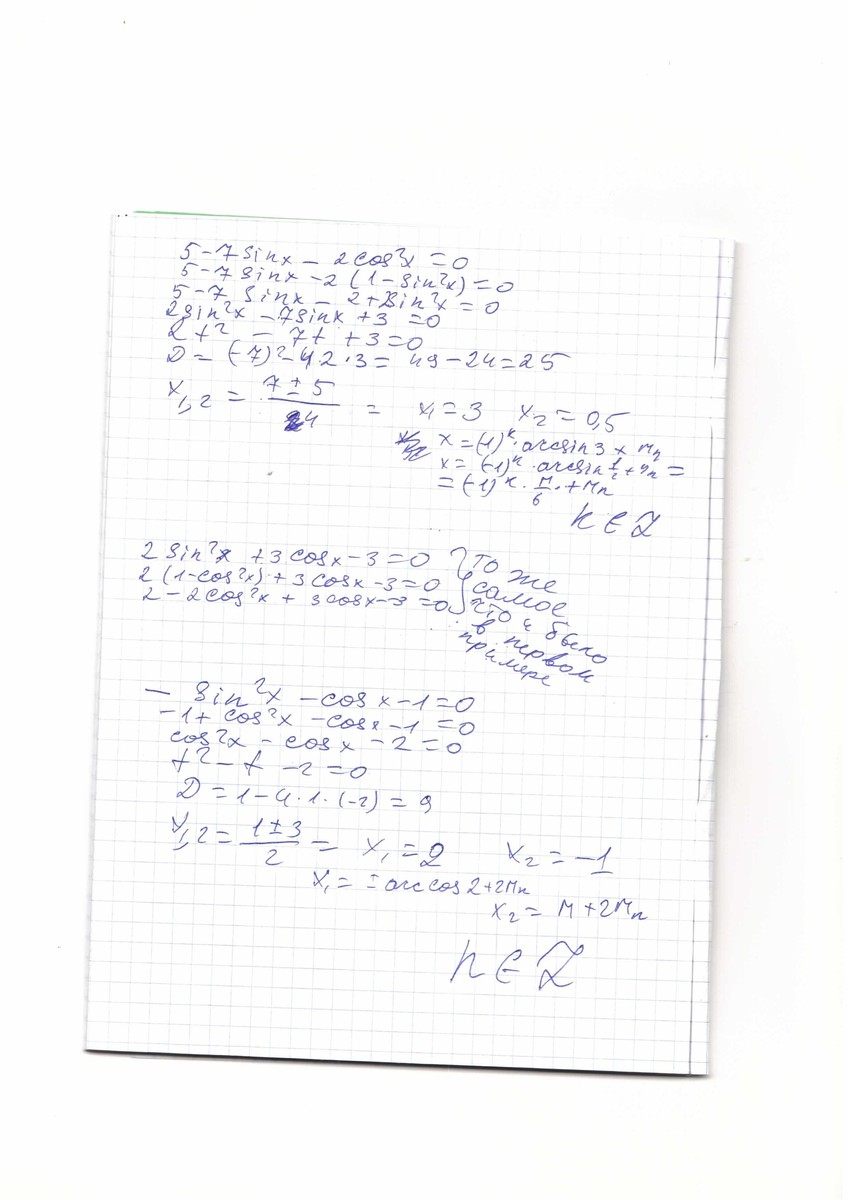 5-7sinx - 2cos²x = 0
5-7sinx - 2(1-sin²x) = 0
5-7 sinx - 2+2sin²x = 0
2sin²x - 7sinx + 3 = 0
2t² - 7t + 3 = 0
D = (-7)²-4·2·3 = 49-24=25
x₁,₂ = (7±5)/4 = x₁=3 x₂=0,5
x=(-1)ⁿ·arcsin3 + πn
x= (-1)ⁿ·arcsin 1/2 + πn =
= (-1)ⁿ·π/6·+πn
n ∈ Z
2sin²x + 3cosx - 3 = 0 } то же
2(1-cos²x) + 3cosx - 3 = 0 самое
2 - 2cos²x + 3cosx - 3 = 0 что и было
в первом
примере
- sin²x - cosx - 1 = 0
-1 + cos²x - cosx - 1 = 0
cos²x - cosx - 2 = 0
t² - t - 2 = 0
D = 1-4·1·(-2) = 9
x₁,₂ = (1±3)/2 = x₁ = 2 x₂ = -1
x₁ = ±arccos2+2πn
x₂ = π+2πn
n ∈ Z